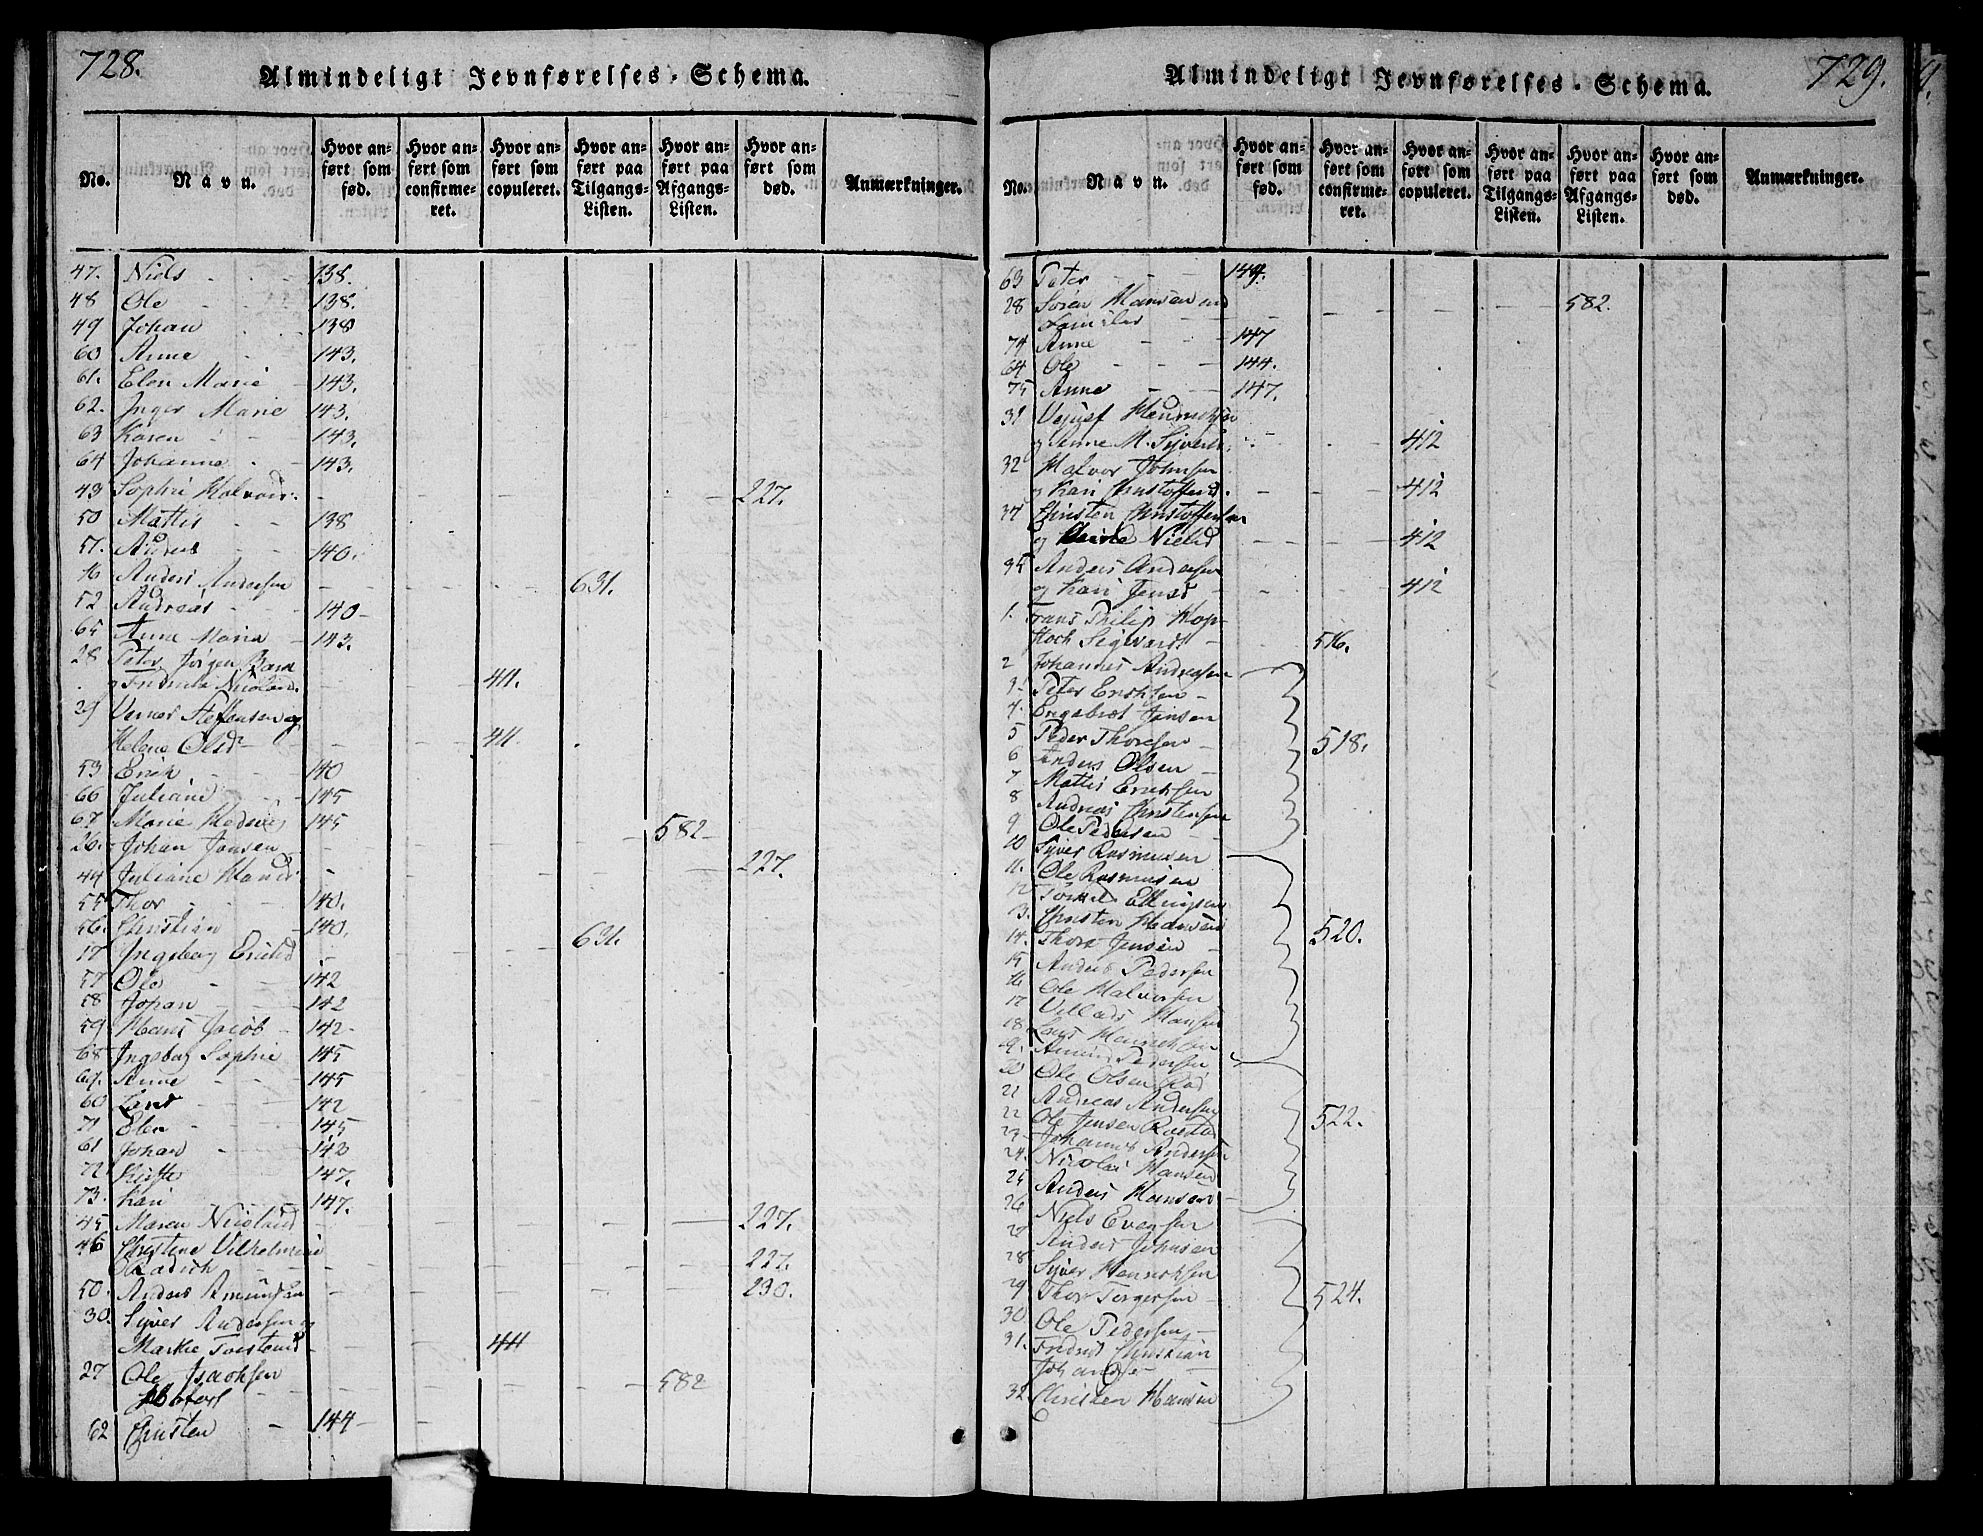 728.
Almindeligt Jevnførelses-Schema.
No. Navn. Hvor anført som fød. Hvor anført som confirmeret. Hvor anført som copuleret. Hvor anført paa Tilgangs-Listen. Hvor anført paa Afgangs-Listen. Hvor anført som død. Anmærkninger.
47. Niels - - 138.
48 Ole - - 138.
49 Johan - 138
60 Anne - 143.
61. Elen Marie - 143.
62. Inger Marie 143.
63 Karen - - 143.
64 Johanne - 143.
43 Sophie Halvors: - - 227.
50 Mattis - - 138
51. Anders - 140.
16 Anders Andersen - - 631.
52 Andreas - - 140-
65 Anne Maria - 143.
28 Peter Jørgen
- 411.
29 Verner Steffensen og
Helene Olsd - - - 411.
53 Erich - - 140
66 Juliane - - 145
67 Marie Hedevig 145
26. Johan Jansen - - 582-
44 Juliane Hansd - - 227.
55 Thor - - 140.
56. Christian - 140.
17 Ingeborg Ericsd - - 631.
57 Ole - - 142
58 Johan - - 142
59 Hans Jacob - 142-
68 Ingebog Sophie 145
69. Anne - - 145
60 Lars - - 142
71 Elen - - 145
61 Johan - - 143
72 - 147.
73. Kari - - 147.
45 Maren - - 227.
46 Christine Vilhelmine
- - 227.
50. Anders Amundsen - - 230.
30. Syver Andersen og
Marthe - - 411
27 Ole Isachsen
- - 582
62 Christen - 144-
729.
Almindeligt Jevnførelses-Schema.
No. Navn. Hvor anført som fød. Hvor anført som confirmeret. Hvor anført som copuleret. Hvor anført paa Tilgangs-Listen. Hvor anført paa Afgangs-Listen. Hvor anført som død. Anmærkninger.
63 Peter - - 144.
28 Søren Hansen med
Familie - - 582.
74 Anne - - 147
64 Ole - - 144.
75 Anne - - 147.
31
og Anne M. Syverts: - - 412
32 Halvor Johnsen
og Kari Christoffersd. - - 412
34 Christen Christoffersen
og Nielsd - - 412
35 Anders Andersen
og Kari Jensd - - 412
1. Frans Philip Hop-
stock - 516.
2 Johannes Andersen
3. Peter Erichsen -
4. Engebret Jensen
5 Peder Thoresen - 518.
6 Anders Olsen -
7 Mattis Erichsen
8 Andreas Christensen
9 Ole Pedersen -
10 Syver Rasmusen
11. Ole Rasmusen
12 Ellingsen
13. Christen Hansen
14. Thore Jensen - 520.
15 Anders Pedersen
16 Ole Halvorsen
17 Villads Hansen
18. Lars Henrichsen
9. Pedersen
20 Ole Olsen
21 Andreas Andersen
22 Ole Jensen 522.
23 Johannes Andersen
24. Nicolai Hansen
25 Anders Hansen -
26 Niels Evensen
27 Anders Johnsen
28 Syver Henrichsen
29 Thor Torgersen - 524.
30. Ole Pedersen -
31. Fredrich Christian
32 Christen Hansen